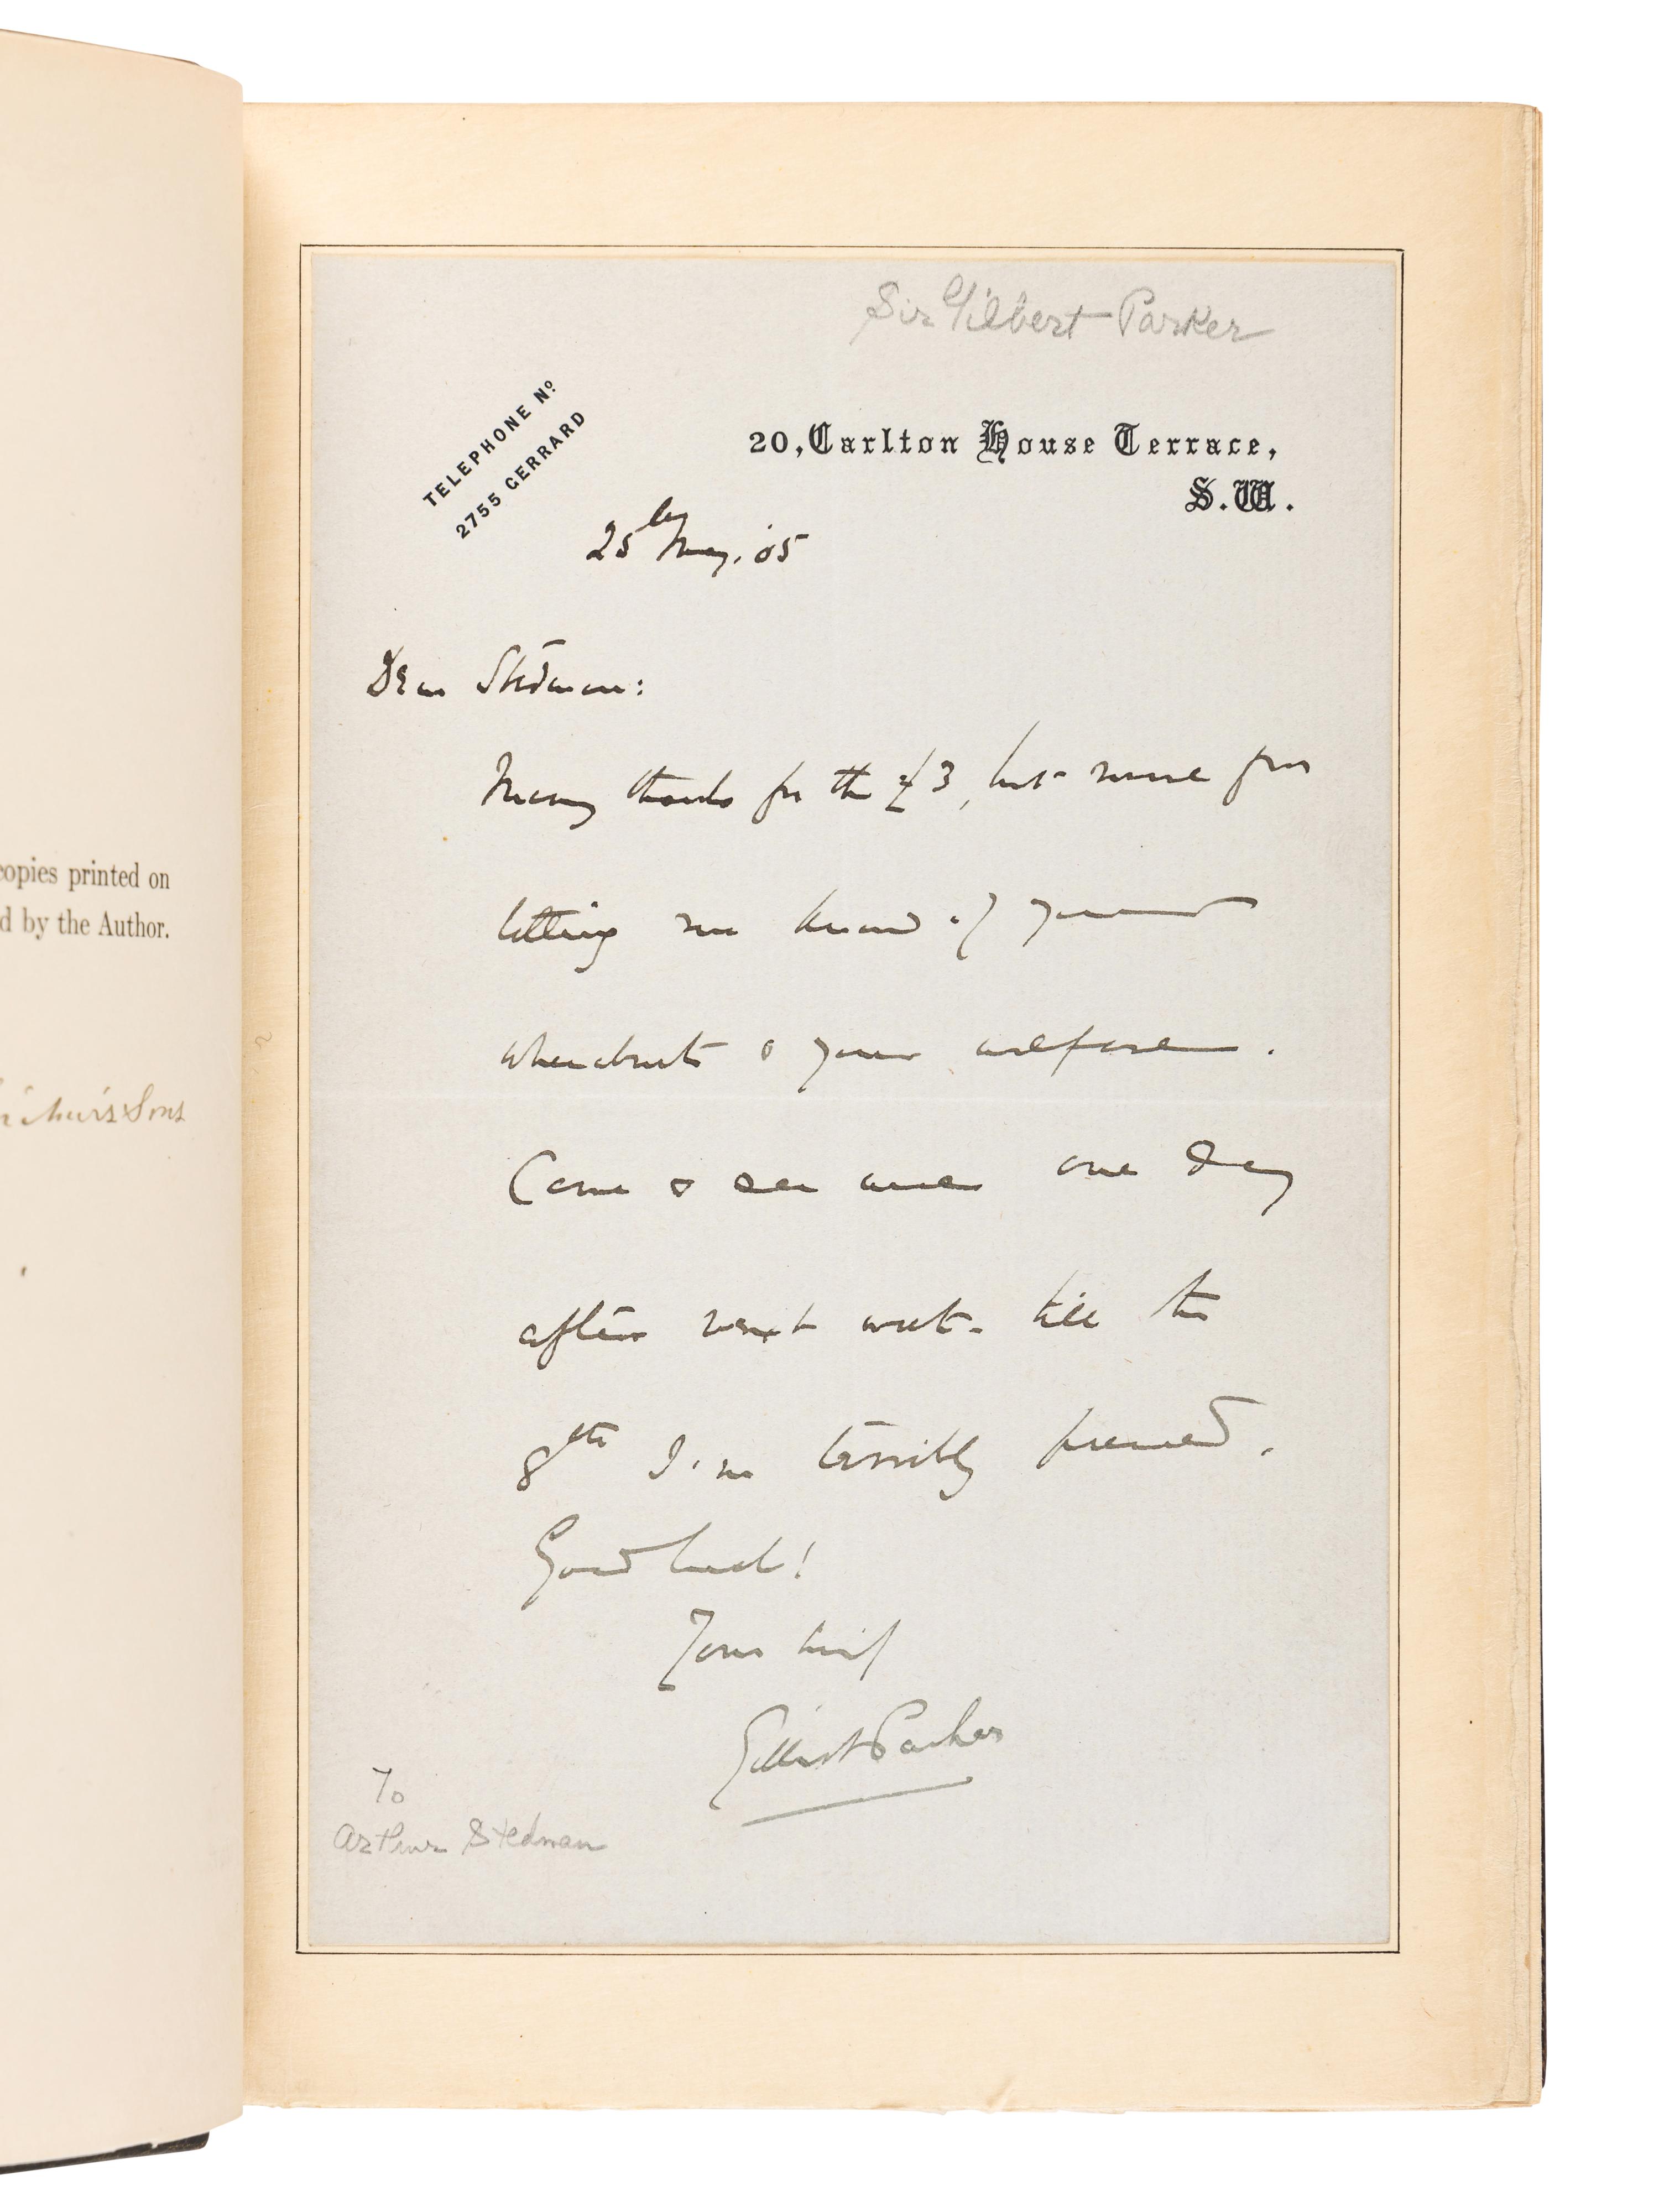 copies printed on
d by the Author.
Sons
Sir Gilbert Parker
TELEPHONE Nº
2755 GERRARD
20, Carlton House Terrace,
S.W.
25 May. '05
Dear Stedman:
Many thanks for the £3, but more for
letting me know of your
whereabouts & your welfare.
Come & see me one day
after next week. till the
8th I'm terribly pressed.
Good luck!
Yours
Gilbert Parker
To
Arthur Stedman